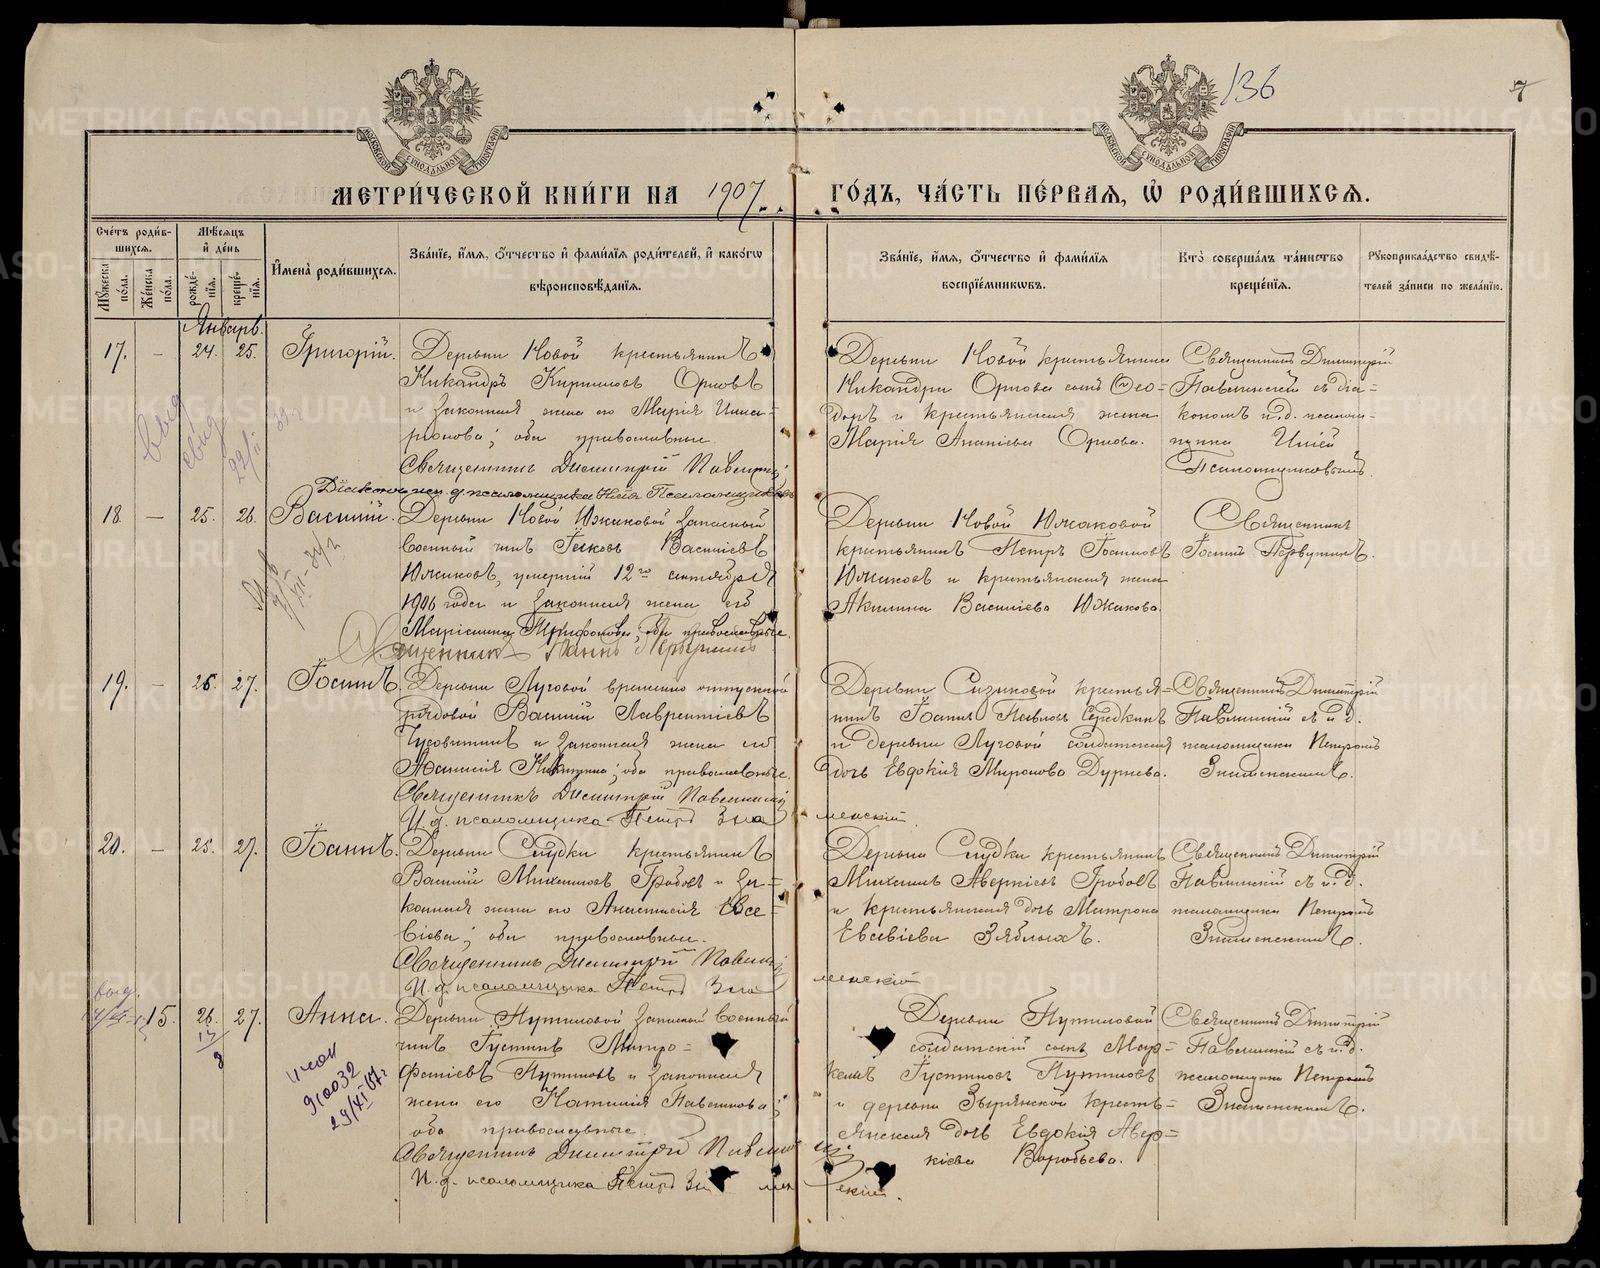 136
7
МОСКОВСКОЙ СѴНОДАЛЬНОЙ ТИПОГРАФІИ
МОСКОВСКОЙ СѴНОДАЛЬНОЙ ТИПОГРАФІИ
МЕТРИ́ЧЕСКОЙ КНИ́ГИ НА 1907 ГО́ДЪ, ЧА́СТЬ ПЕ́РВАЯ, Ѡ҆ РОДИ́ВШИХСЯ.
Сче́тъ роди́в-
шихся.
Мѣ́сяцъ
и҆ де́нь
Мꙋ́жеска по́ла.
Же́нска по́ла.
рожде́-
нїя.
креще́-
нїя.
И҆мена̀ роди́вшихся.
Зва́нїе, и҆́мя, ѻ҆́тчество и҆ фами́лїя роди́телей, и҆ како́гѡ
вѣроисповѣ́данїя.
Зва́нїе, и҆́мя, ѻ҆́тчество и҆ фами́лїя
воспрїе́мникѡвъ.
Кто̀ соверша́лъ та́инство
креще́нїя.
Рꙋкоприкла́дство свидѣ́-
телей за́писи по жела́нїю.
Январь.
17. – 24. 25. Григорій.
Деревни Новой крестьянинъ
Никандръ Кириловъ Орловъ
и законная жена его Марія Илла-
ріонова; оба православные.
Священникъ Димитрій Павлинскій
Діаконъ и. д. псаломщика Илія Псаломщиковъ
Деревни Новой крестьянина
Никандра Орлова сынъ Ѳео-
доръ и крестьянская жена
Марія Ананіева Орлова.
Священникъ Димитрій
Павлинскій съ діа-
кономъ и. д. псалом-
щика Иліей
Псаломщиковымъ.
18. – 25. 26. Василій.
Деревни Новой Южаковой запасный
военный чинъ Іаковъ Василіевъ
Южаковъ, умершій 12го сентября
1906 года и законная жена его
Маріамна Трифонова; оба православные.
Священникъ Іоаннъ Первушинъ
Деревни Новой Южаковой
крестьянинъ Петръ Іоанновъ
Южаковъ и крестьянская жена
Акилина Василіева Южакова.
Священникъ
Іоаннъ Первушинъ.
19. – 25. 27. Іоаннъ.
Деревни Луговой временно отпускной
рядовой Василій Лаврентіевъ
Чусовитинъ и законная жена его
Аѳанасія Никитина; оба православные.
Священникъ Димитрій Павлинскій
И. д. псаломщика Петръ Знаменскій.
Деревни Сизиковой крестья-
нинъ Іоаннъ Павловъ Середкинъ
и деревни Луговой солдатская
дочь Евдокія Миронова Дурнева.
Священникъ Димитрій
Павлинскій съ и. д.
псаломщика Петромъ
Знаменскимъ.
20. – 25. 27. Іоаннъ.
Деревни Слудки крестьянинъ
Василій Михаиловъ Гробовъ и за-
конная жена его Анастасія Евсе-
віева; оба православные.
Священникъ Димитрій Павлинскій
И. д. псаломщика Петръ Знаменскій
Деревни Слудки крестьянинъ
Михаилъ Аверкіевъ Гробовъ
и крестьянская дочь Матрона
Евсевіева Зяблыхъ.
Священникъ Димитрій
Павлинскій съ и. д.
псаломщика Петромъ
Знаменскимъ.
15. 26. 27. Анна.
Деревни Путиловой запасный военный
чинъ Густинъ Митро-
фаніевъ Путиловъ и законная
жена его Наталія Павлинова;
оба православные.
Священникъ Димитрій Павлинскій
И. д. псаломщика Петръ Знаменскій.
Деревни Путиловой
солдатскій сынъ Мар-
келлъ Густиновъ Путиловъ
и деревни Зырянской кресть-
янская дочь Евдокія Авер-
кіева Воробьева.
Священникъ Димитрій
Павлинскій съ и. д.
псаломщика Петромъ
Знаменскимъ.
METRIKI.GASO-URAL.RU